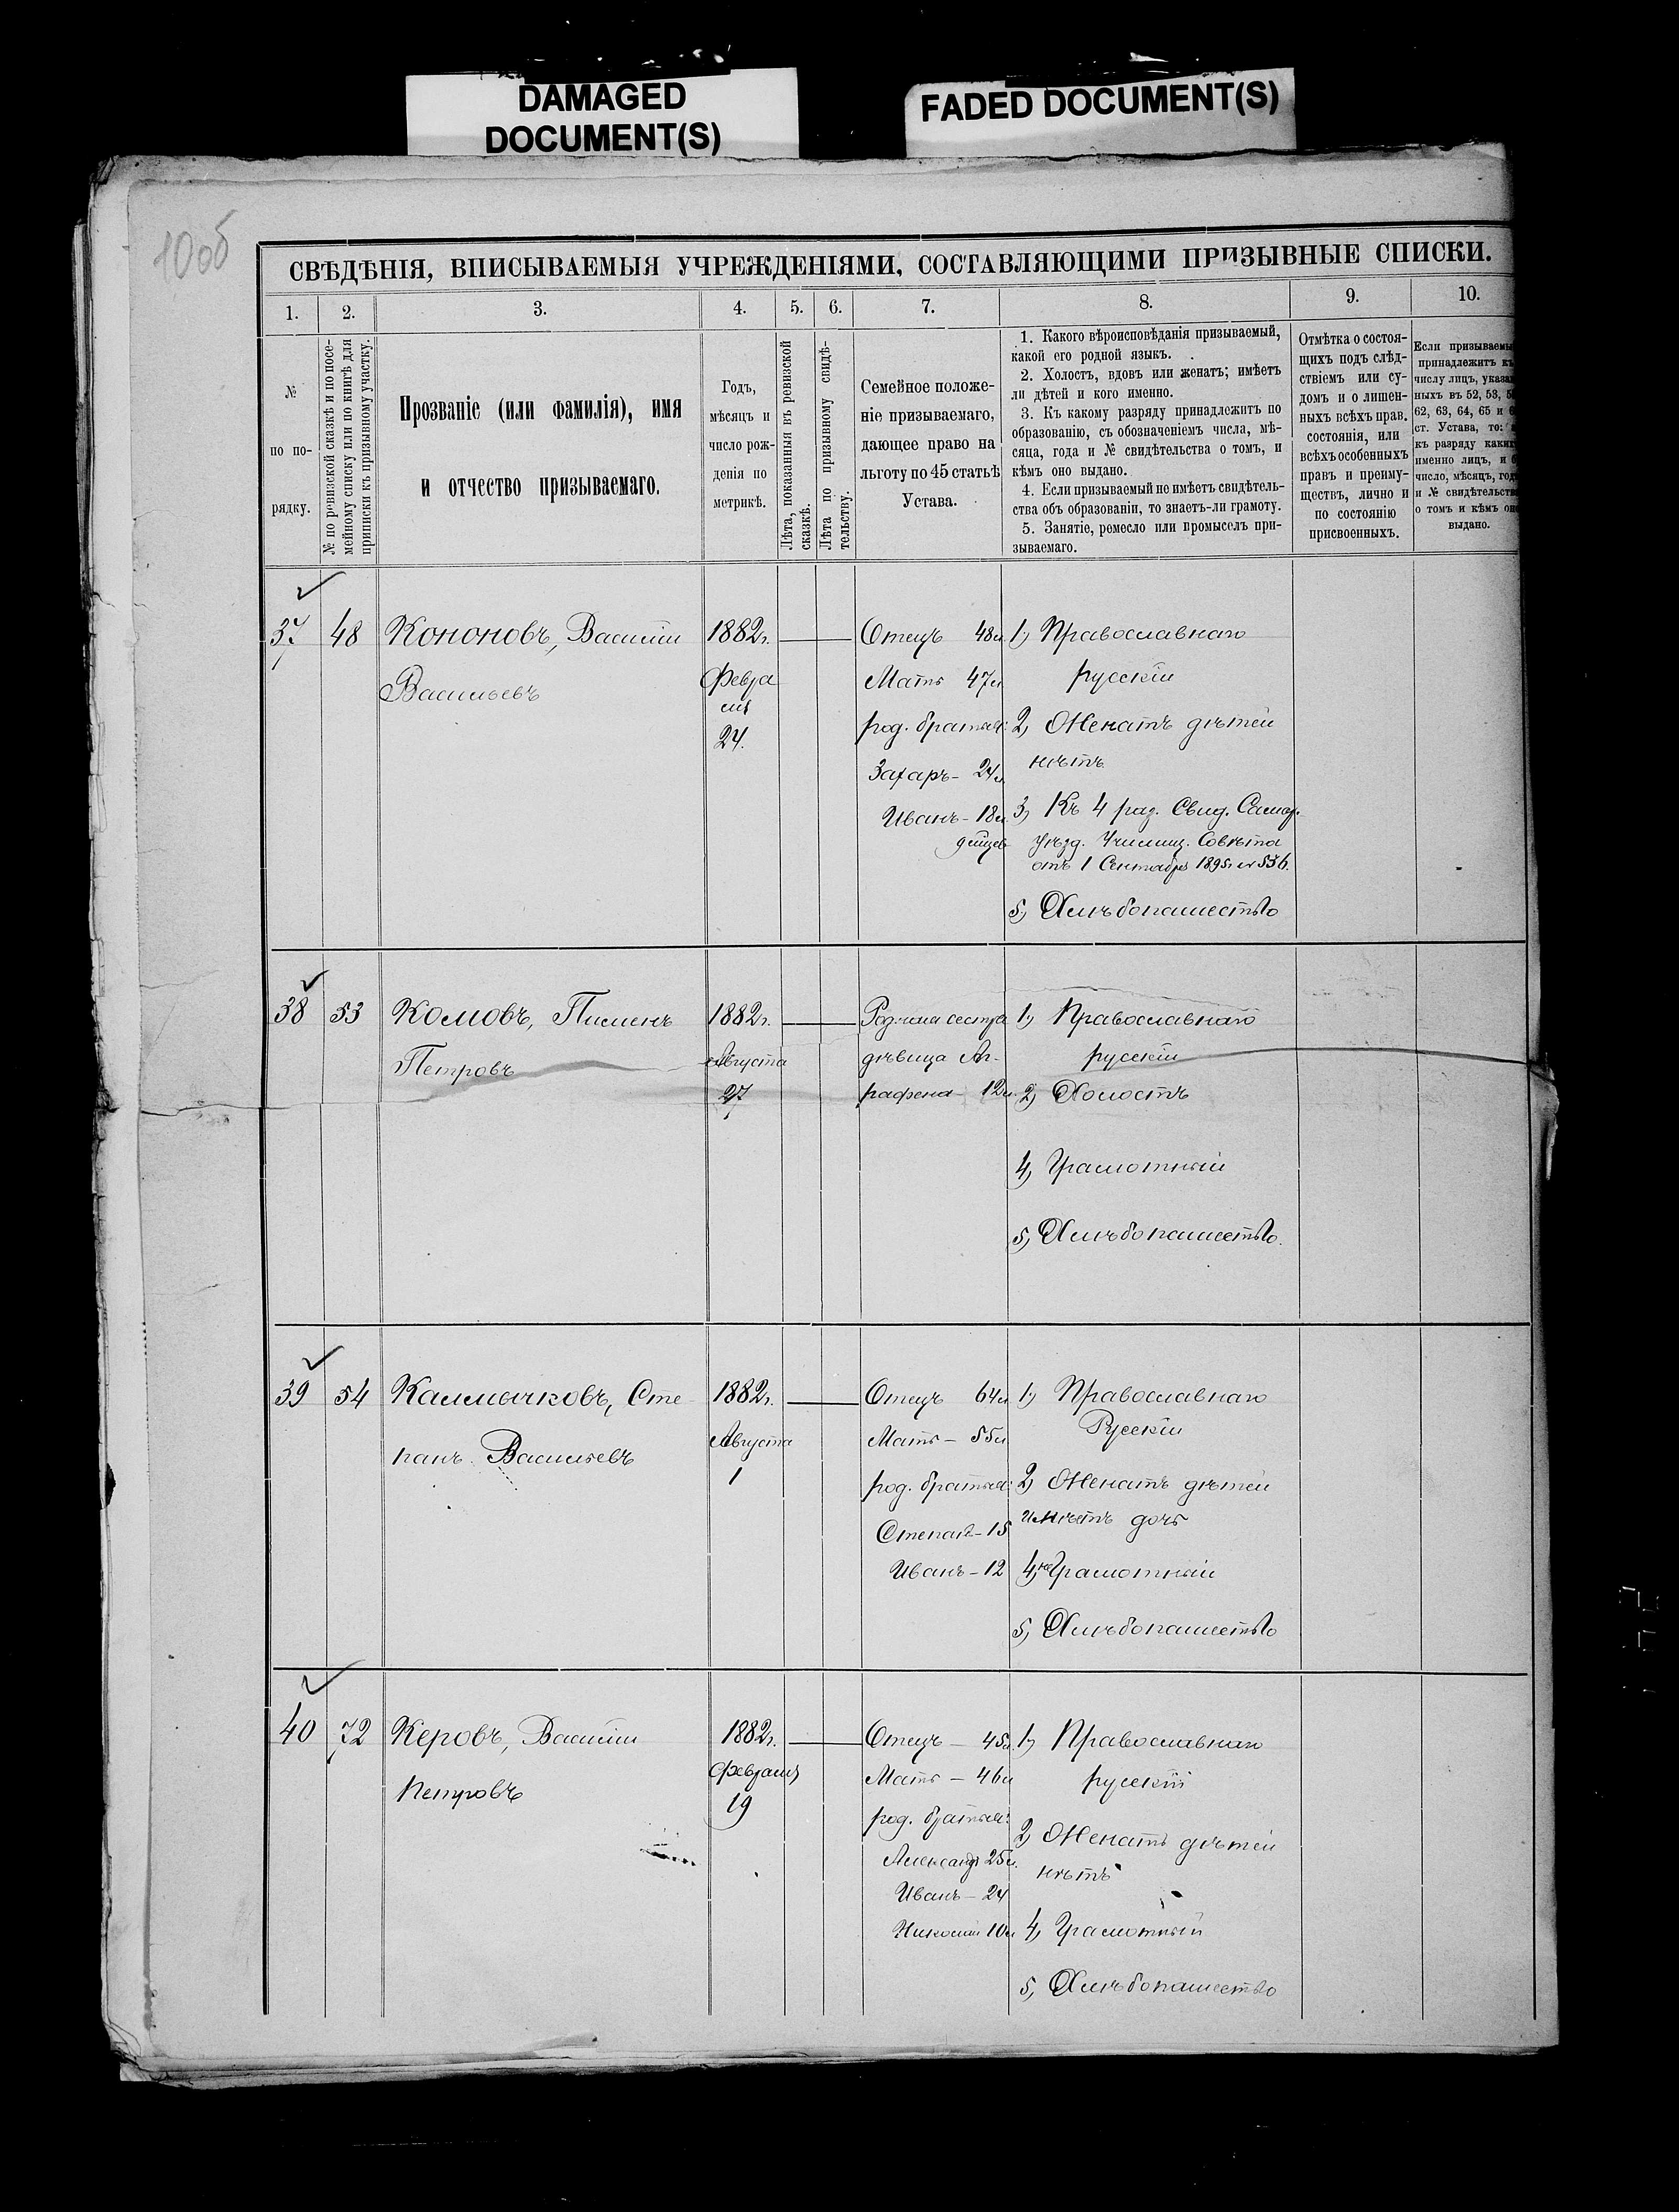 DAMAGED
DOCUMENT(S)
FADED DOCUMENT(S)
10об
СВѢДѢНІЯ, ВПИСЫВАЕМЫЯ УЧРЕЖДЕНІЯМИ, СОСТАВЛЯЮЩИМИ ПРИЗЫВНЫЕ СПИСКИ.
1. 2. 3. 4. 5. 6. 7. 8. 9. 10.
№
по по-
рядку.
№ по ревизской сказкѣ и по посе-
мейному списку или по книгѣ для
приписки къ призывному участку.
Прозваніе (или фамилія), имя
и отчество призываемаго.
Годъ,
мѣсяцъ и
число рож-
денія по
метрикѣ.
Лѣта, показанныя въ ревизской
сказкѣ.
Лѣта по призывному свидѣ-
тельству.
Семейное положе-
ніе призываемаго,
дающее право на
льготу по 45 статьѣ
Устава.
1. Какого вѣроисповѣданія призываемый,
какой его родной языкъ.
2. Холостъ, вдовъ или женатъ; имѣетъ
ли дѣтей и кого именно.
3. Къ какому разряду принадлежитъ по
образованію, съ обозначеніемъ числа, мѣ-
сяца, года и № свидѣтельства о томъ, и
кѣмъ оно выдано.
4. Если призываемый не имѣетъ свидѣтель-
ства объ образованіи, то знаетъ-ли грамоту.
5. Занятіе, ремесло или промыселъ при-
зываемаго.
Отмѣтка о состоя-
щихъ подъ слѣд-
ствіемъ или су-
домъ и о лишен-
ныхъ всѣхъ прав.
состоянія, или
всѣхъ особенныхъ
правъ и преиму-
ществъ, лично и
по состоянію
присвоенныхъ.
Если призываемы
принадлежитъ къ
числу лицъ, указан
ныхъ въ 52, 53,
62, 63, 64, 65 и
ст. Устава, то:
къ разряду какихъ
именно лицъ, и
число, мѣсяцъ, годъ
и № свидѣтельства
о томъ и кѣмъ оно
выдано.
37
48
Кононовъ, Василій
Васильевъ
1882г.
Февра
ля
24.
Отецъ 48л.
Мать 47л
род. братья:
Захаръ - 24л
Иванъ - 18л.
1) Православнаго
русскій
2) Женатъ дѣтей
нѣтъ
3) Къ 4 раз. Свид. Самар.
Уѣзд. Училищ. Совѣта
отъ 1 Сентября 1895г. № 536.
5) Хлѣбопашество
38
53
Комовъ, Пименъ
Петровъ
1882г.
Августа
27
Родная сестра
дѣвица Аг-
рафена - 12л.
1) Православнаго
русскій
2) Холостъ
4) Грамотный
5) Хлѣбопашество.
39
54
Калмычковъ, Сте
панъ Васильевъ
1882г.
Августа
1
Отецъ 64л
Мать - 55л
род. братья:
Степанъ - 15
Иванъ - 12
1) Православнаго
Русскій
2) Женатъ дѣтей
имѣетъ дочь
4) неграмотный
5) Хлѣбопашество
40
72
Керовъ, Василій
Петровъ
1882г.
Февраля
19
Отецъ - 45л.
Мать - 46л
род. братья:
Александръ 25л.
Иванъ - 24
Николай 10л
1) Православнаго
русскій
2) Женатъ дѣтей
нѣтъ
4) Грамотный
5) Хлѣбопашество